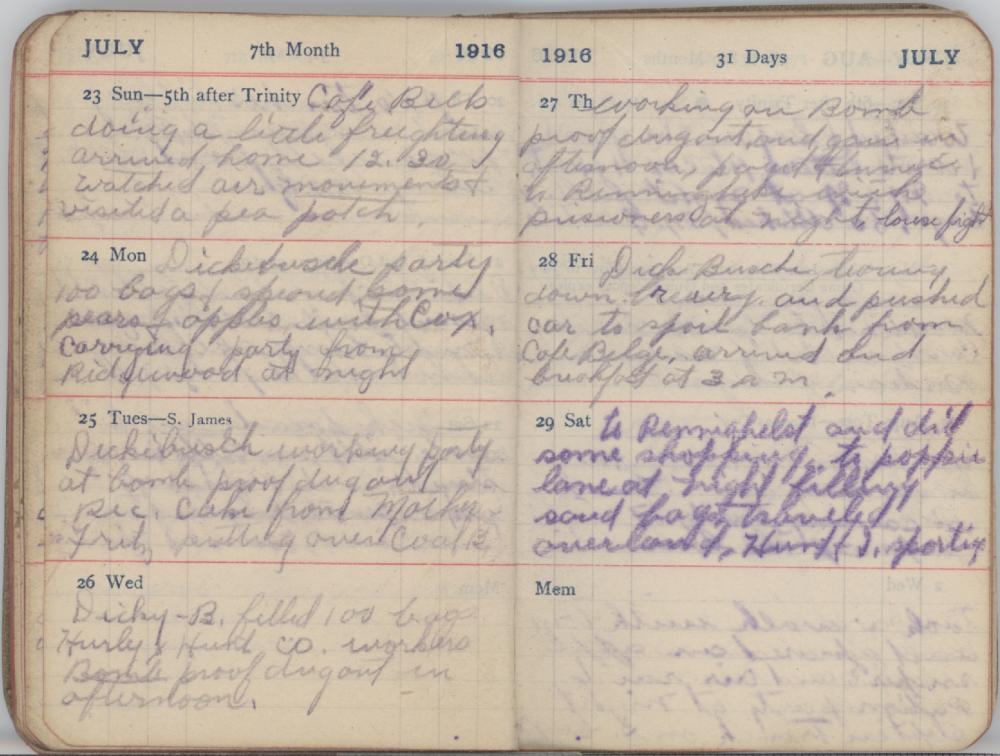 JULY 7th Month 1916
23 Sun—5th after Trinity Cafe Belb
doing a little freighting
arrived home 12.30
watched air movements &
visited a pea patch
24 Mon Dickebusche party
100 bags & spound some
pears & apples with Cox.
Carrying party from
Ridgewood at night
25 Tues—S. James
Dickibusch working party
at bomb proof dugout
Rec. Cake from Mother
Fritz putting over Coal B.
26 Wed
Dicky-B. filled 100 bags
Hurly & Hunt co. workers
Bomb proof dugout in
afternoon.
1916 31 Days JULY
27 Th working on Bomb
proof dugout, and, game in
afternoon, paid &
to Renninghelst with
prisoners at night, louse fight
28 Fri Dick Busche, tearing
down brewery. and pushed
car to spoil bank from
Cafe Belge, arrived and
breakfast at 3 a m
29 Sat to Rennighelst and did
some shopping, to poppie
lane at night filling
sand bags, traveled
overland, Hunt & I, sporting
Mem